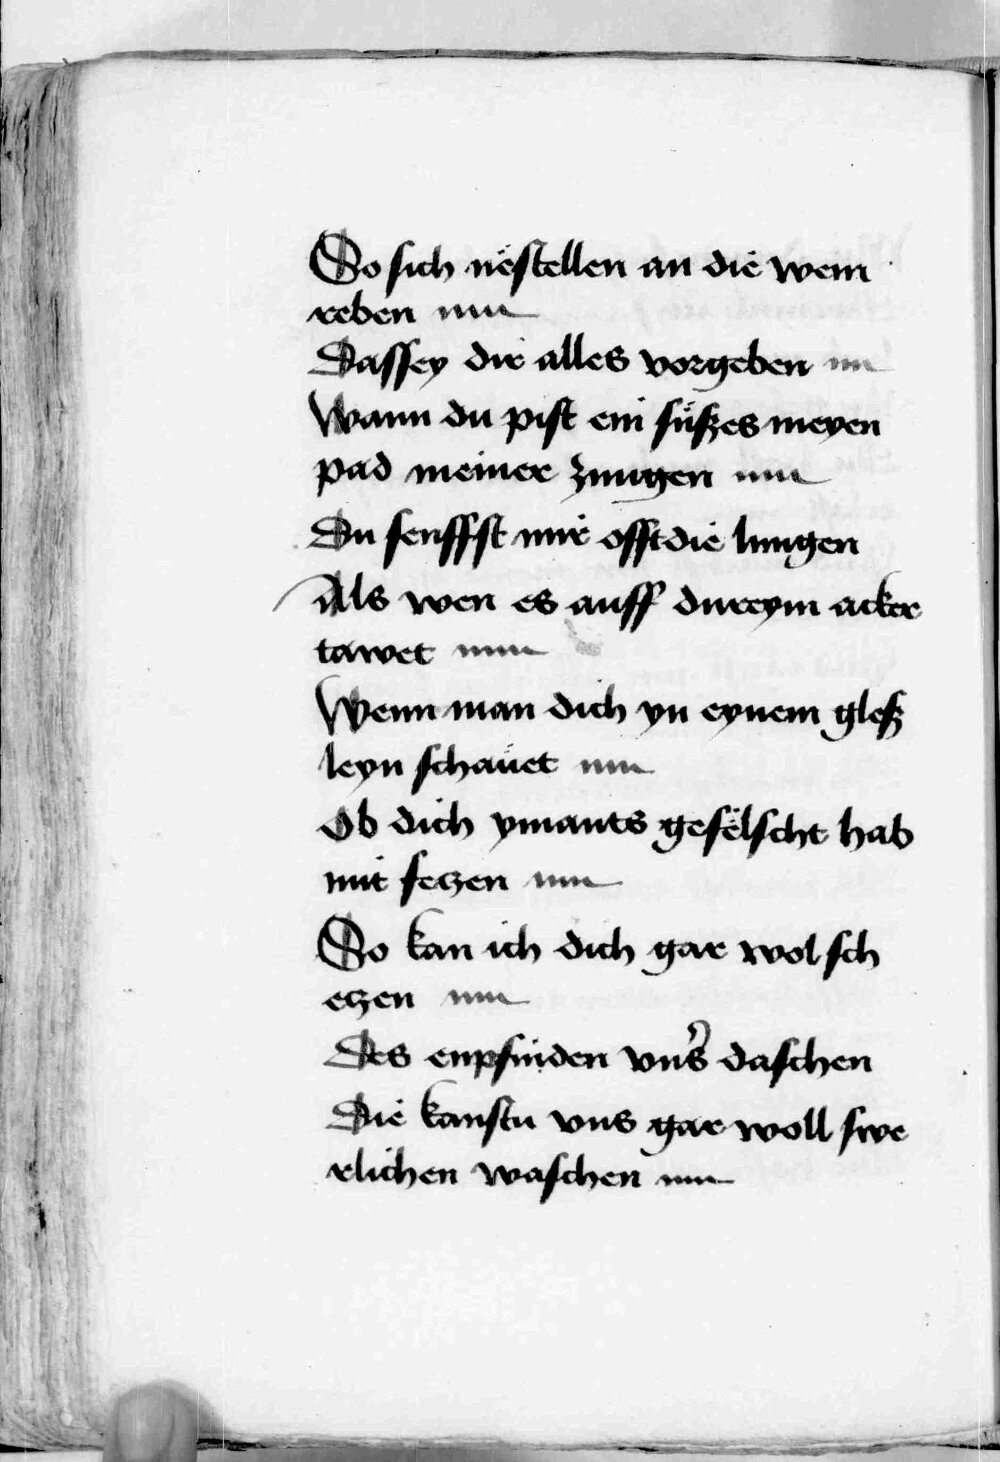 So sich nëstellen an die wein
reben
Das sey dir alles vorgeben
Wann du pist ein süßes meyen
pad meiner zungen
Du senffst mir offt die lungen
Als wen es auff dureym acker
tawet
Wenn man dich yn eynem gleß
leyn schauet
Ob dich ymants gefelscht hab
mit seczen
So kan ich dich gar wol sch
eczen
Des enpfinden vnser daschen
Die kanstu vns gar woll swe
rlichen waschen